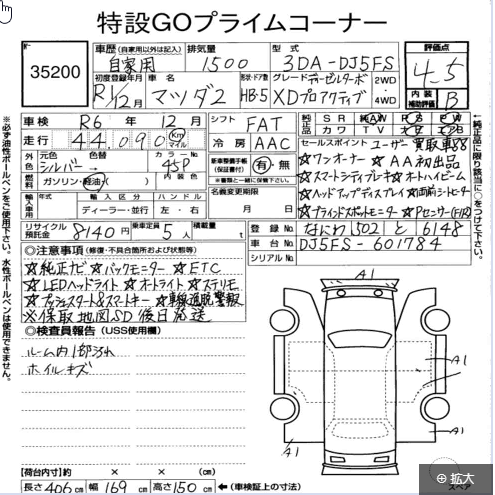 特設GOプライムコーナー
35200
車歴 (自家用以外は記入) 自家用
排気量 1500
型式 3DA-DJ5FS
評価点 4.5
初度登録年月 R1/12月
車名 マツダ2
形状・ドア数 HB・5
グレード ディーゼルターボ XDプロアクティブ
2WD・4WD
内装補助評価 B
車検 R6年12月
シフト FAT
純正品 SR AW PS PW
カワ TV ナビ エアB
走行 44,090 Km マイル
冷房 AAC
セールスポイント ユーザー買取車88
外色 元色 シルバー 色替 カラーNo. 45P
新車整備手帳(保証書付) 有・無
☆ワンオーナー ☆AA初出品
燃料 ガソリン・軽油・( ) 内装色
☆スマートシティブレーキ ☆オートハイビーム
輸入車用 年式 輸入区分 ハンドル
名義変更期限
☆ヘッドアップディスプレイ ☆前シートヒーター
年 ディーラー・並行 左・右
月 日
☆ブラインドスポットモニター ☆Pセンサー(F/R)
リサイクル預託金 8140円
乗車定員 5人
積載量 t
登録No なにわ502 と 6148
車台No DJ5FS-601784
シリアルNo
◎注意事項 (修復・不具合箇所および状態等)
☆純正ナビ ☆バックモニター ☆ETC
☆LEDヘッドライト ☆オートライト ☆ステリモ
☆プッシュスタート&スマートキー ☆車線逸脱警報
※保取地図SD後日発送
◎検査員報告 (USS使用欄)
ルーム内1部汚れ
ホイルキズ
A1
A1
A1
A1
A1
スペア
【荷台内寸】約 × × (cm)
長さ406cm 幅169cm 高さ150cm ←(車検証上の寸法)
※必ず油性ボールペンをご使用下さい。水性ボールペンは使用できません。
←純正品に限り該当に○をつけて下さい。
拡大